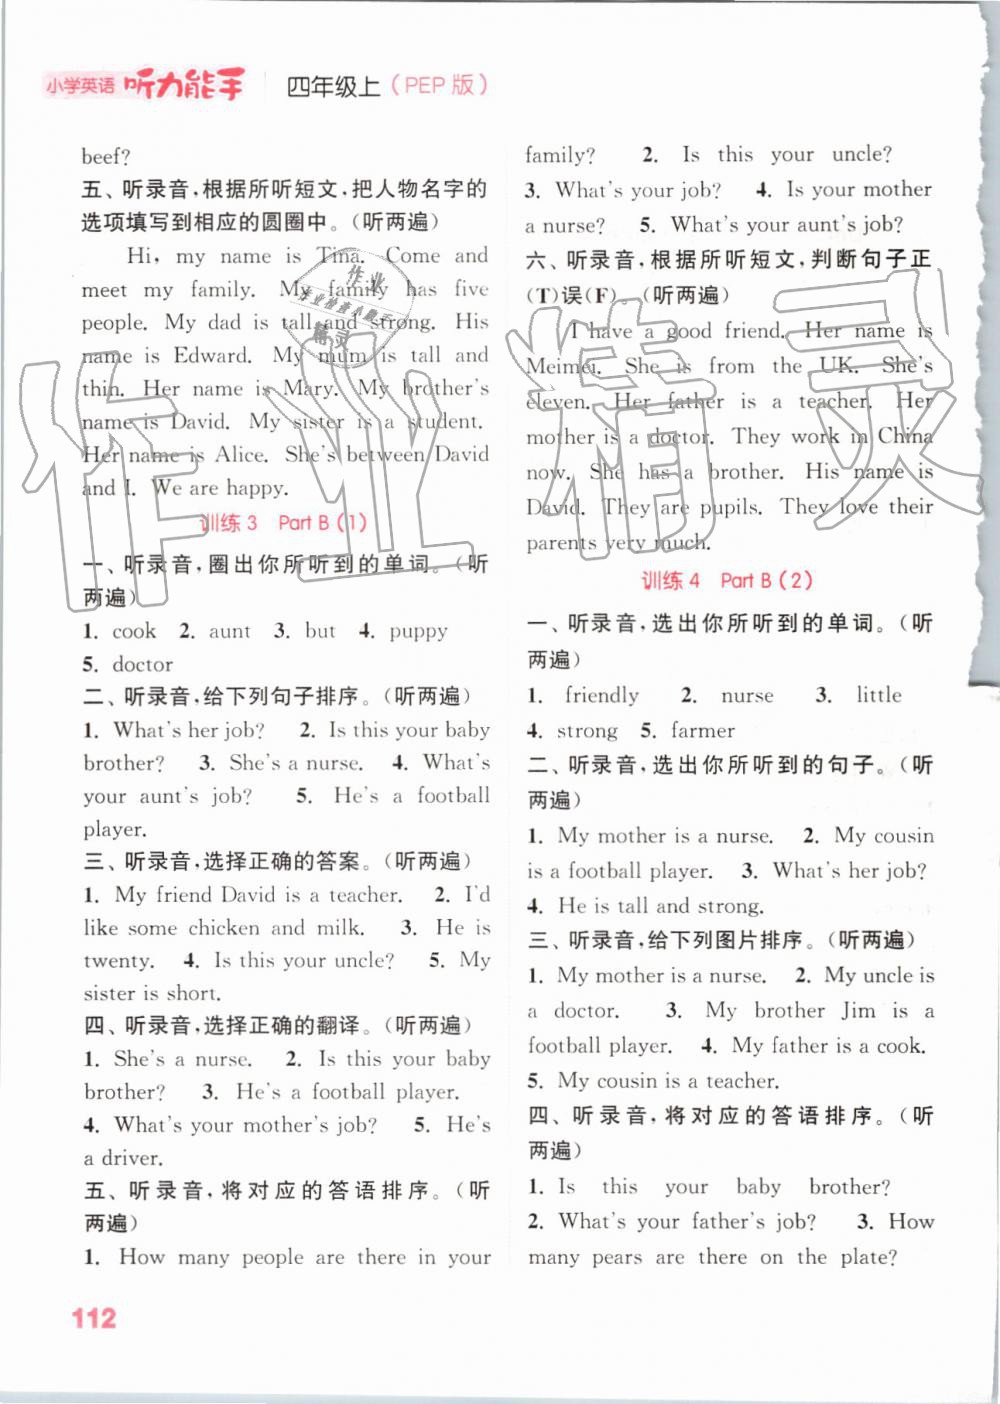 小学英语 听力能手 四年级上（PEP 版）
beef?
五、听录音，根据所听短文，把人物名字的
选项填写到相应的圆圈中。（听两遍）
Hi, my name is Tina. Come and
meet my family. My family has five
people. My dad is tall and strong. His
name is Edward. My mum is tall and
thin. Her name is Mary. My brother's
name is David. My sister is a student.
Her name is Alice. She's between David
and I. We are happy.
训练 3 Part B (1)
一、听录音，圈出你所听到的单词。（听
两遍）
1. cook 2. aunt 3. but 4. puppy
5. doctor
二、听录音，给下列句子排序。（听两遍）
1. What's her job? 2. Is this your baby
brother? 3. She's a nurse. 4. What's
your aunt's job? 5. He's a football
player.
三、听录音，选择正确的答案。（听两遍）
1. My friend David is a teacher. 2. I'd
like some chicken and milk. 3. He is
twenty. 4. Is this your uncle? 5. My
sister is short.
四、听录音，选择正确的翻译。（听两遍）
1. She's a nurse. 2. Is this your baby
brother? 3. He's a football player.
4. What's your mother's job? 5. He's
a driver.
五、听录音，将对应的答语排序。（听
两遍）
1. How many people are there in your
family? 2. Is this your uncle?
3. What's your job? 4. Is your mother
a nurse? 5. What's your aunt's job?
六、听录音，根据所听短文，判断句子正
(T)误(F)。（听两遍）
I have a good friend. Her name is
Meimei. She is from the UK. She's
eleven. Her father is a teacher. Her
mother is a doctor. They work in China
now. She has a brother. His name is
David. They are pupils. They love their
parents very much.
训练 4 Part B (2)
一、听录音，选出你所听到的单词。（听
两遍）
1. friendly 2. nurse 3. little
4. strong 5. farmer
二、听录音，选出你所听到的句子。（听
两遍）
1. My mother is a nurse. 2. My cousin
is a football player. 3. What's her job?
4. He is tall and strong.
三、听录音，给下列图片排序。（听两遍）
1. My mother is a nurse. 2. My uncle is
a doctor. 3. My brother Jim is a
football player. 4. My father is a cook.
5. My cousin is a teacher.
四、听录音，将对应的答语排序。（听
两遍）
1. Is this your baby brother?
2. What's your father's job? 3. How
many pears are there on the plate?
112
作业精灵
作业
作业检查小助手
精灵